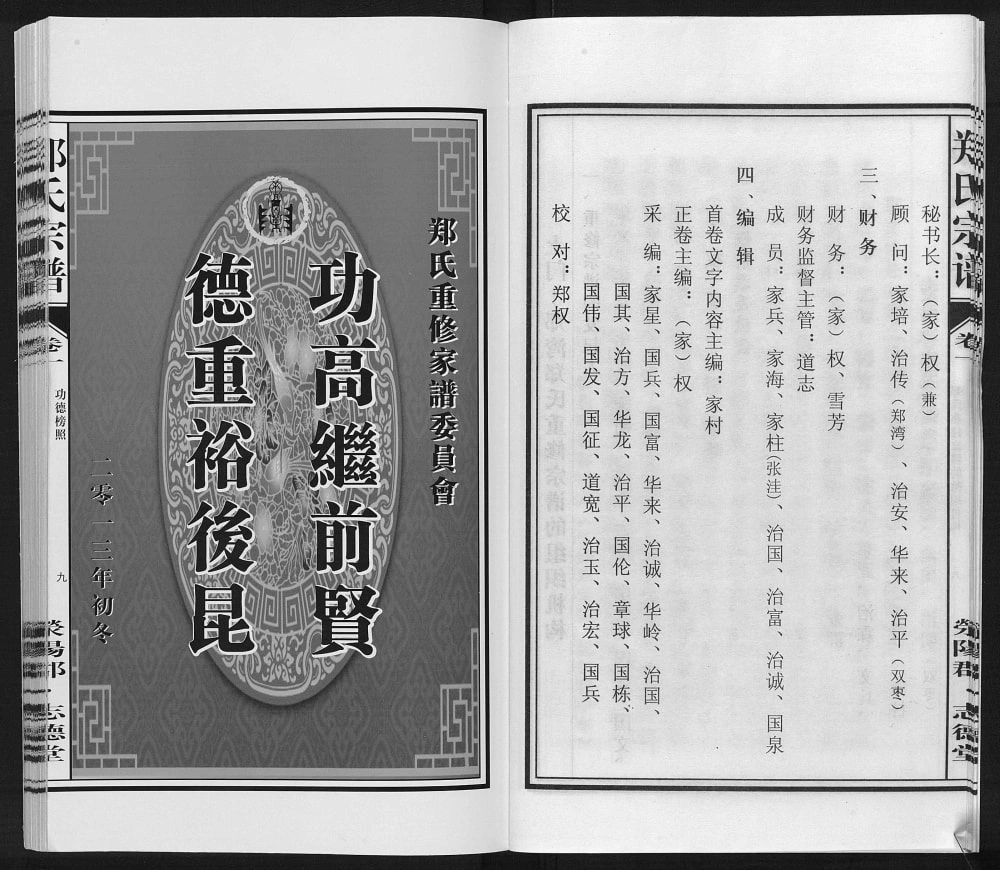 郑氏宗谱
卷一
荥阳郡·志德堂
秘书长：（家）权（兼）
顾问：家培、治传（郑湾）、治安、华来、治平（双枣）
三、财务
财务：（家）权、雪芳
财务监督主管：道志
成员：家兵、家海、家柱（张洼）、治国、治富、治诚、国泉
四、编辑
首卷文字内容主编：家村
正卷主编：（家）权
采编：家星、国兵、国富、华来、治诚、华岭、治国、
国其、治方、华龙、治平、国伦、章球、国栋、
国伟、国发、国征、道宽、治玉、治宏、国兵
校对：郑权
郑氏重修家譜委員會
功高繼前賢
德重裕後昆
二零一三年初冬
氏宗谱
卷一
功德榜照
九
志德堂